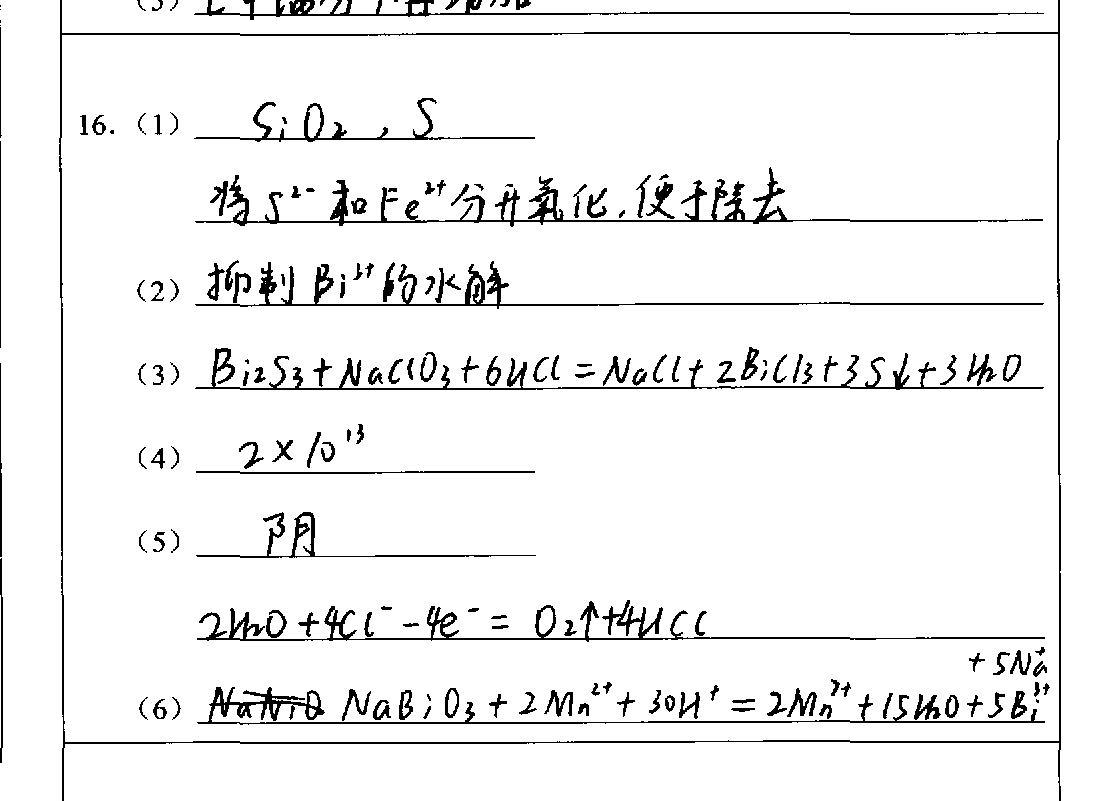 16.（1） SiO₂，S
将S²⁻和Fe²⁺分开氧化，便于除去
（2） 抑制Bi³⁺的水解
（3） Bi₂S₃+NaClO₃+6HCl=NaCl+2BiCl₃+3S↓+3H₂O
（4） 2×10¹³
（5） 阴
2H₂O+4Cl⁻-4e⁻=O₂↑+4HCl
+5Na⁺
（6） NaBiO₃+2Mn²⁺+30H⁺=2Mn⁷⁺+15H₂O+5Bi³⁺